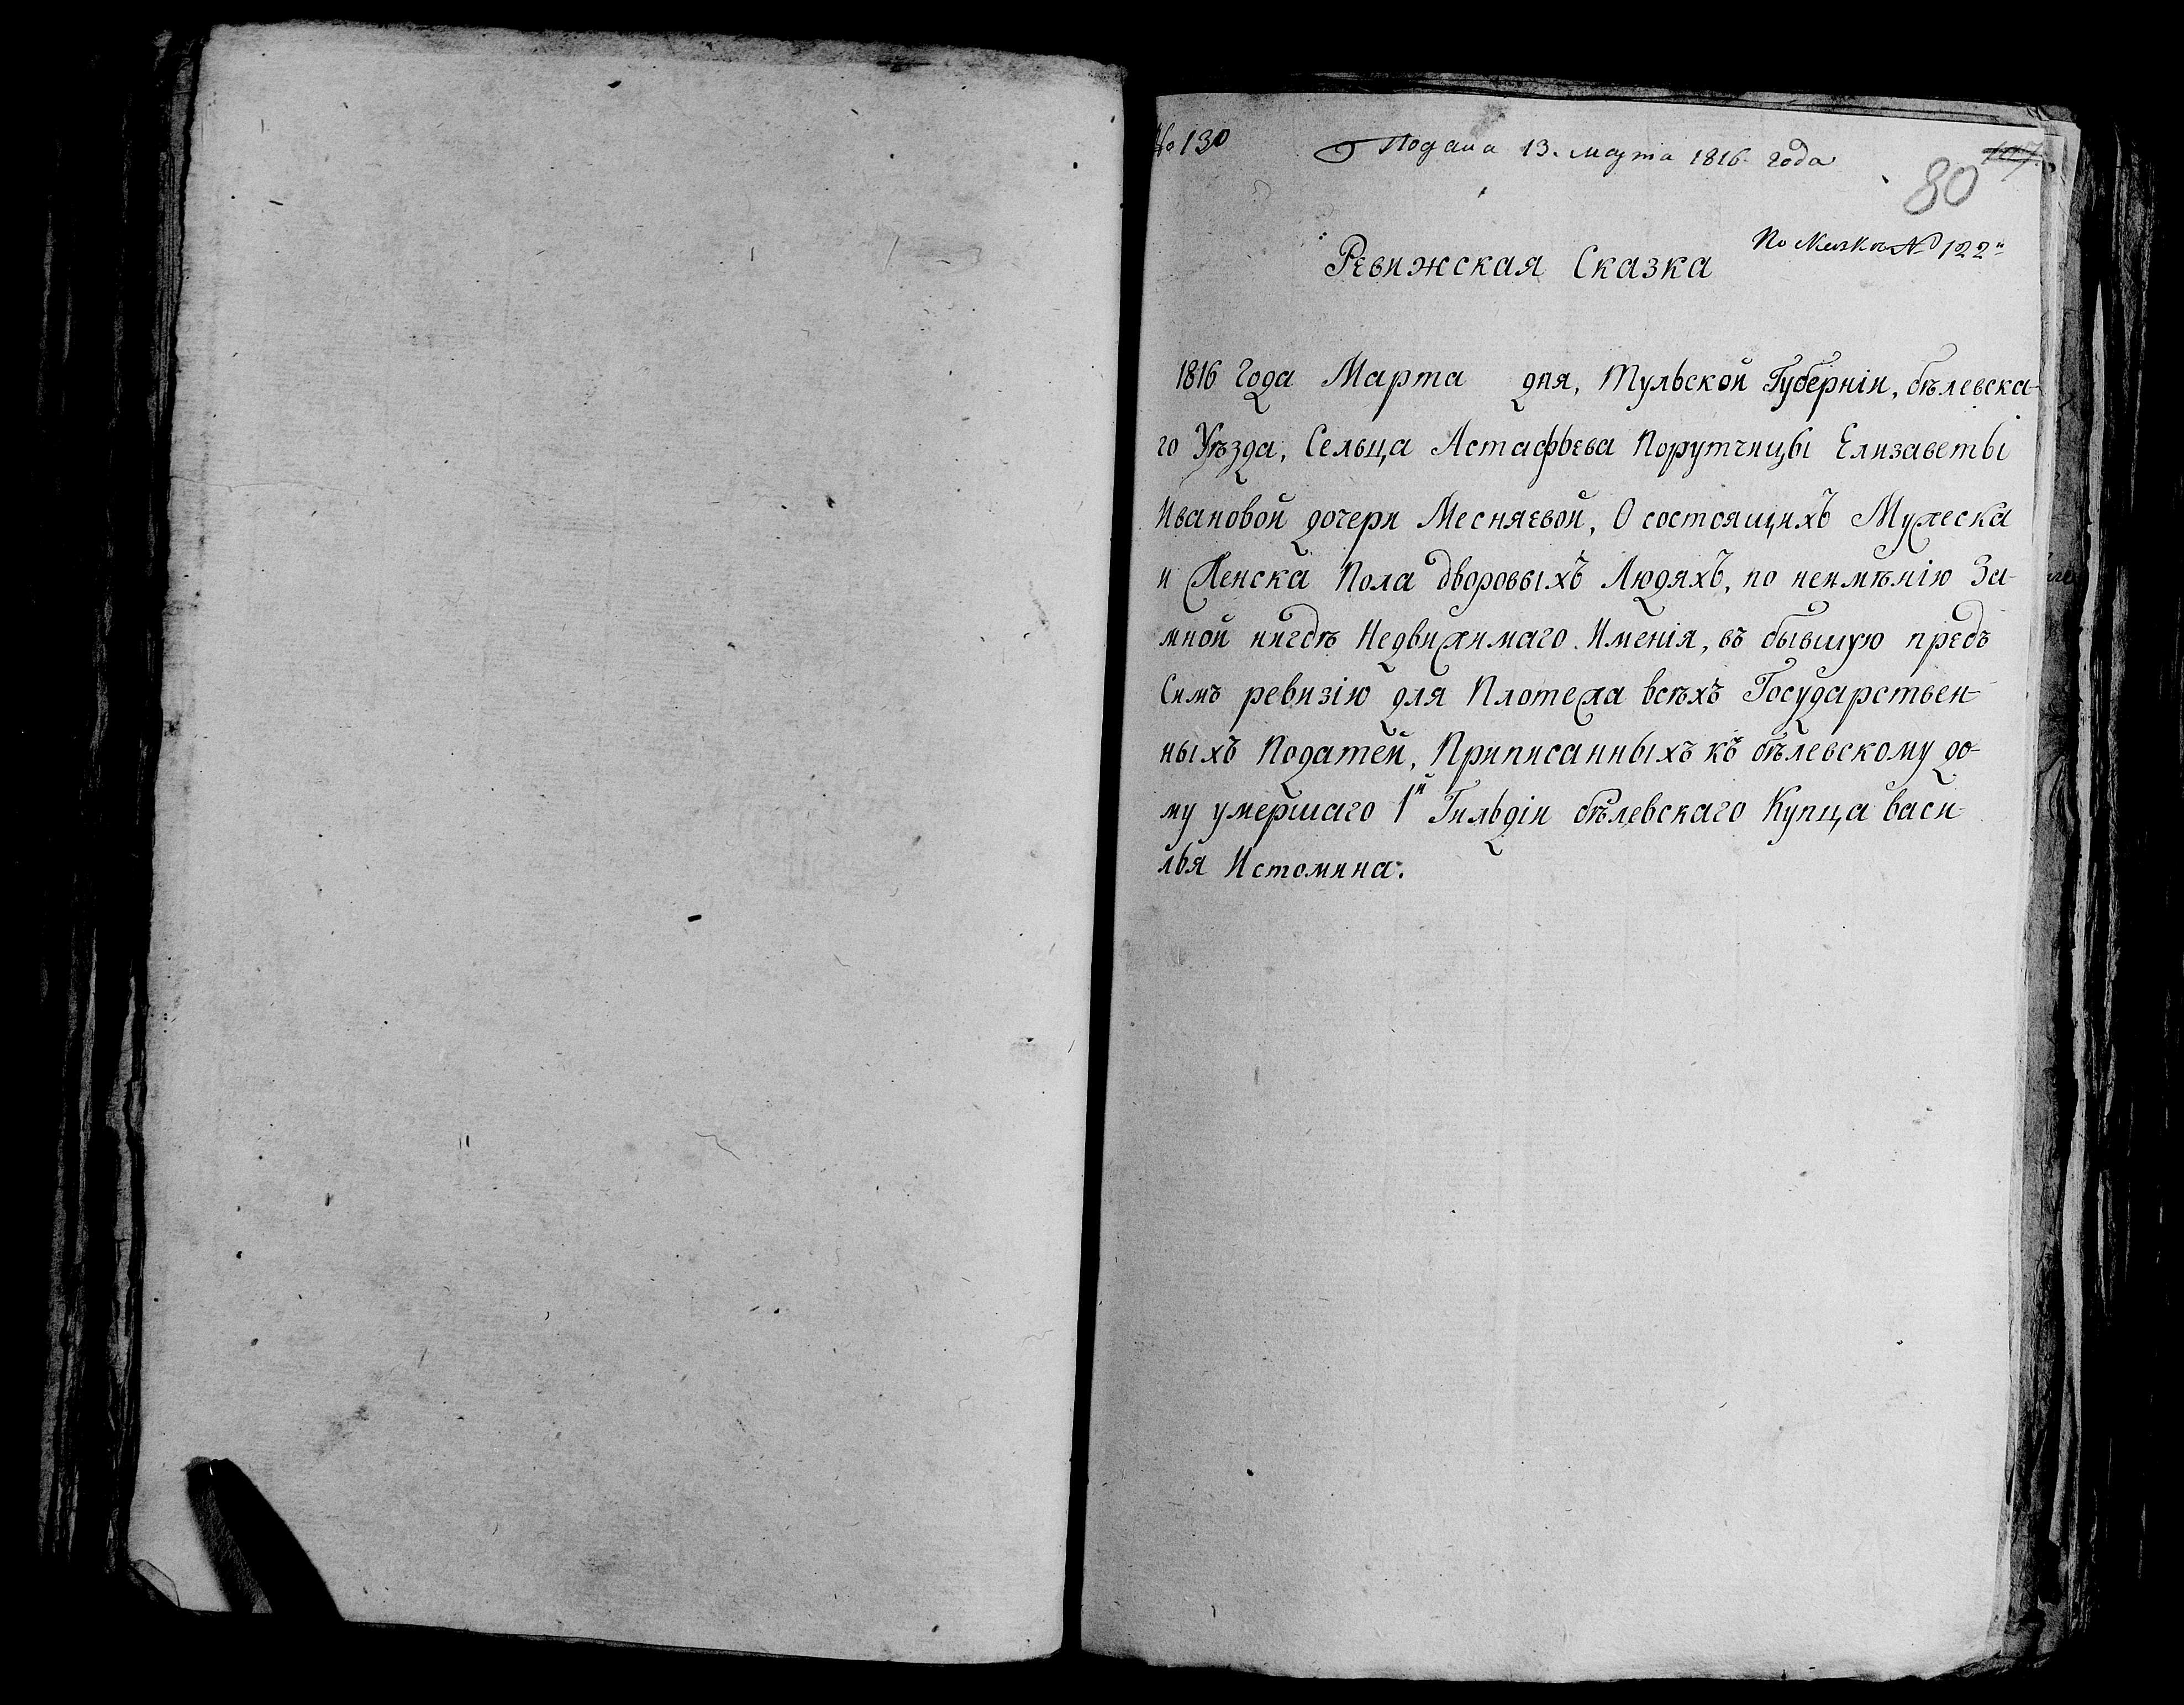 № 130
Подана 13. марта 1816 года
107
80
По №
122
Ревижская Сказка
1816 года Марта дня, Тульской Губерніи, бѣлевска-
го Уѣзда, Сельца Астафьева Порутчицы Елизаветы
Ивановой дочери Месняевой, О состоящихъ Мужеска
и Женска Пола дворовыхъ Людяхъ, по неимѣнію За-
мной нигдѣ Недвижимаго Именія, въ бывшую предъ
Симъ ревизію для Плотежа всѣхъ Государствен-
ныхъ Податей, Приписанныхъ къ бѣлевскому до-
му умершаго 1й Гильдіи бѣлевскаго Купца васи-
лья Истомина.